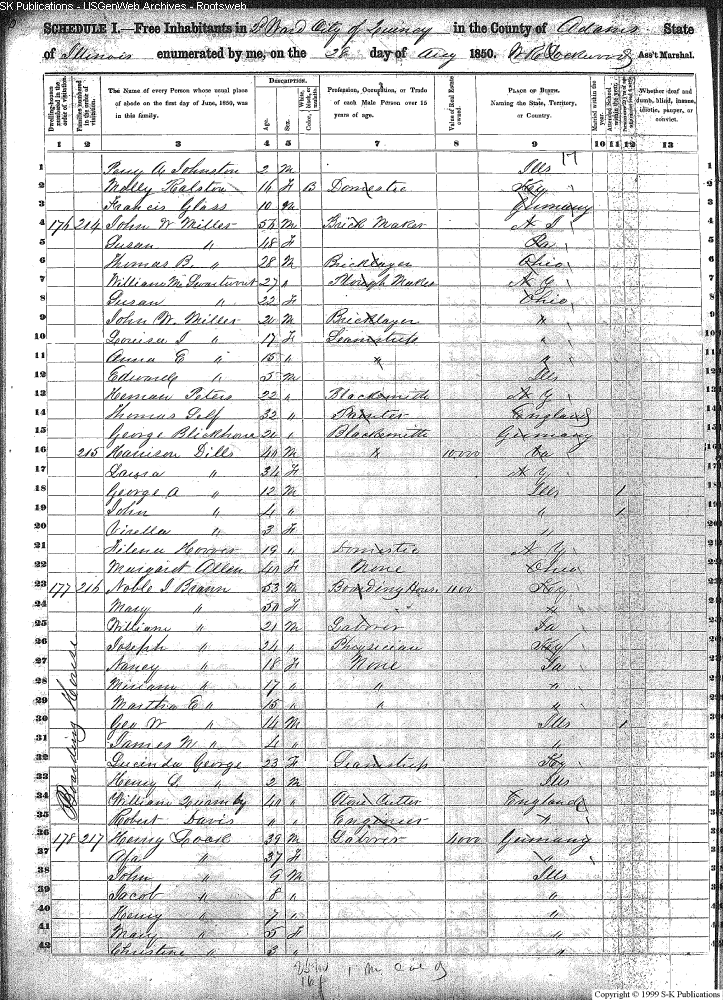 SK Publications - USGenWeb Archives - Rootsweb
SCHEDULE I.—Free Inhabitants in 2d Ward City of Quincy in the County of Adams State
of Illinois enumerated by me, on the 28 day of Aug 1850. Ass't Marshal.
DESCRIPTION.
Dwelling-houses numbered in the order of visitation. Families numbered in the order of visitation. The Name of every Person whose usual place of abode on the first day of June, 1850, was in this family. Age. Sex. Color, White, black, or mulatto. Profession, Occupation, or Trade of each Male Person over 15 years of age. Value of Real Estate owned. PLACE OF BIRTH. Naming the State, Territory, or Country. Married within the year. Attended School within the year. Whether deaf and dumb, blind, insane, idiotic, pauper, or convict.
1 2 3 4 5 6 7 8 9 10 11 12 13
17
1 A Johnston 2 M Ills 1
2 Molly Ralston 16 F B Domestic Key 2
3 Francis Glass 10 M Germany 3
4 176 214 John W Miller 56 M Brick Maker N J 4
5 Susan " 48 F Pa 5
6 Thomas B. " 28 M Bricklayer Ohio 6
7 William M Swartwout 27 " Plough Maker N Y 7
8 Susan " 22 F Ohio 8
9 John W. Miller 20 M Bricklayer " 9
10 Louisa J " 17 F Seamstress " 10
11 Anna E " 15 " " 11
12 Edward " 5 M Ills 12
13 Heman Peters 22 " Blacksmith N Y 13
14 Thomas Self 32 " Painter England 14
15 George Blickhouse 20 " Blacksmith Germany 15
16 215 Harrison Dills 40 M 10000 Pa 16
17 Laura " 34 F N Y 17
18 George A " 12 M Ills 1 18
19 John " 4 " " 1 19
20 " 3 F " 20
21 Hoover 19 " Domestic N Y 21
22 Margaret Allen 40 F None Ohio 22
23 177 216 Noble J Brawn 53 M Boarding House 1100 Key 23
24 Mary " 50 F " 24
25 William " 21 M Laborer Ia 25
26 Joseph " 24 " Physician Key 26
27 Nancy " 18 F None Ia 27
28 Miriam " 17 " " " 28
29 Martha E " 15 " " " 29
30 Geo W " 14 M Ills 1 30
31 James M " 4 " " 31
32 Lucinda George 23 F Seamstress Key 32
33 Henry " 2 M Ills 33
34 William Quamby 40 " Stone Cutter England 34
35 Robert Davis " " Engineer " 35
Boarding House
36 178 217 Henry 39 M Laborer 4000 Germany 36
37 " 37 F " 37
38 John " 9 M Ills 38
39 Jacob " 8 " " 39
40 Henry " 7 " " 40
41 Mary " 5 F " 41
42 Christine " 3 " " 42
Copyright © 1999 S-K Publications